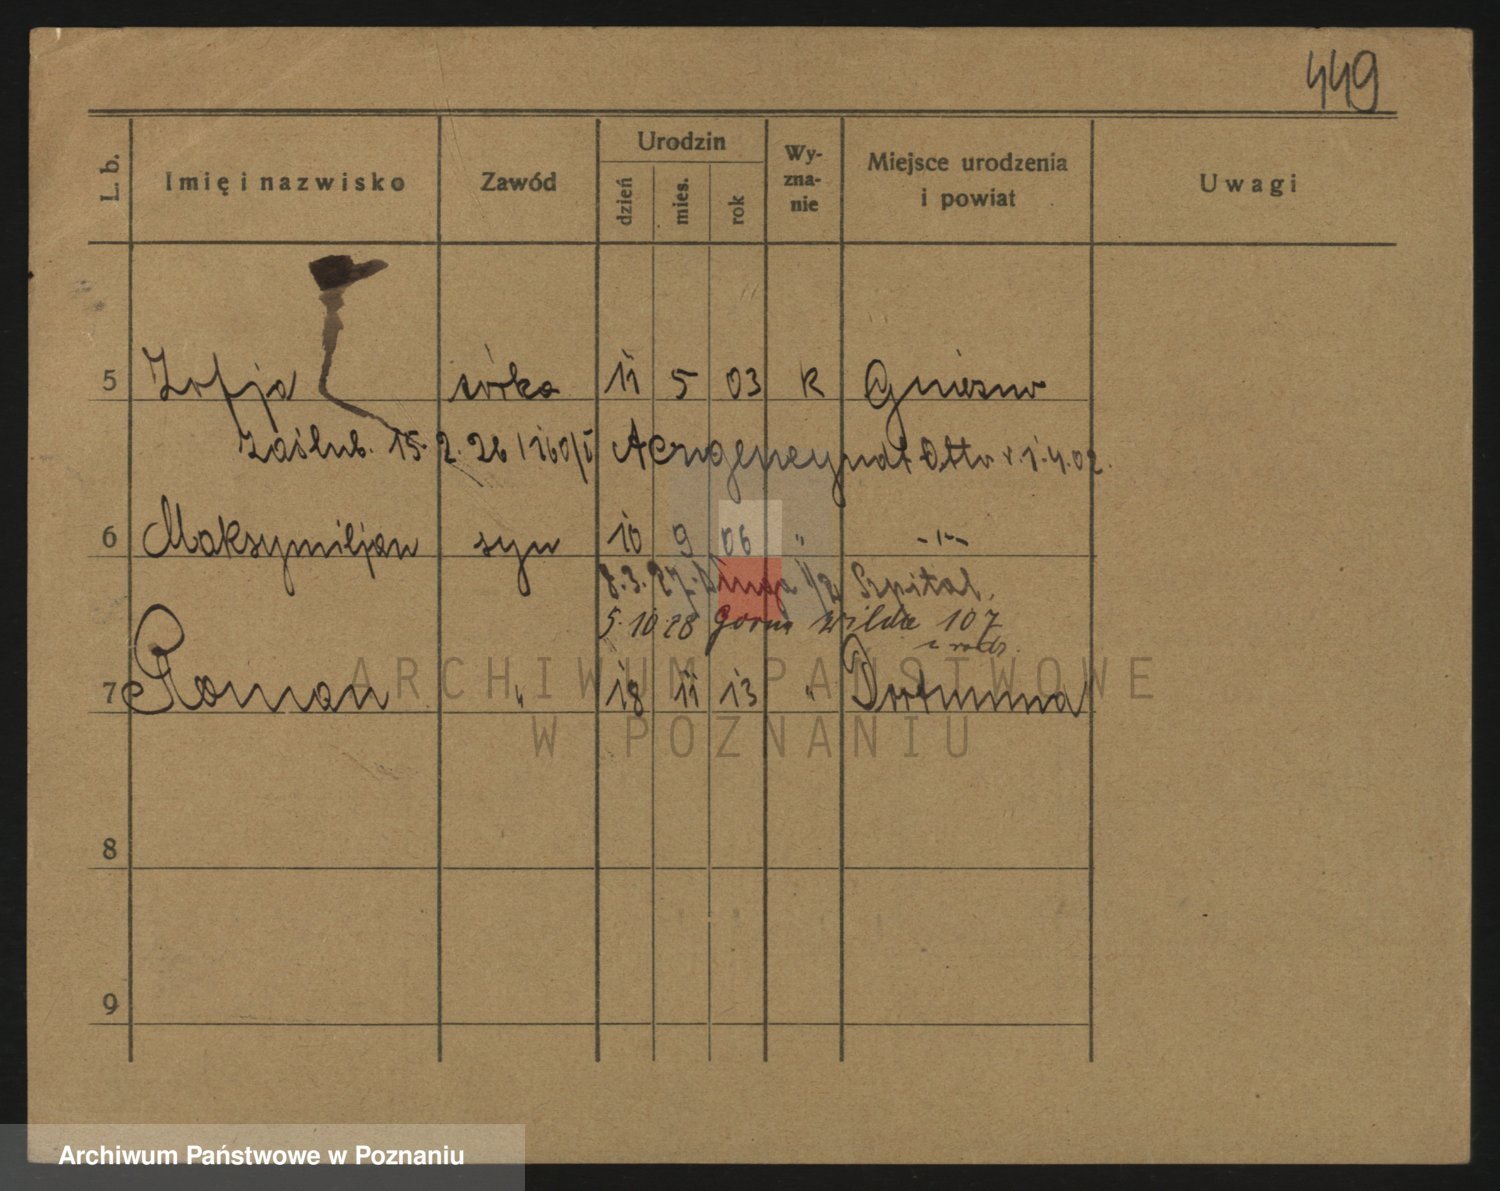 449
L. b. Imię i nazwisko Zawód Urodzin dzień mies. rok Wy- zna- nie Miejsce urodzenia i powiat Uwagi
5 Zofja córka 11 5 03 K Gniezno
Zaślub. 15. 2. 26 / 160/I Otto 1.4.02.
6 Maksymiljan syn 10 9 06 " -"-
8.3.27. Długa 1/2 Szpital.
5.10.28 Górna Wilda 107
7 Roman " 18 11 13 " Dortmund
8
9
ARCHIWUM PAŃSTWOWE
W POZNANIU
Archiwum Państwowe w Poznaniu